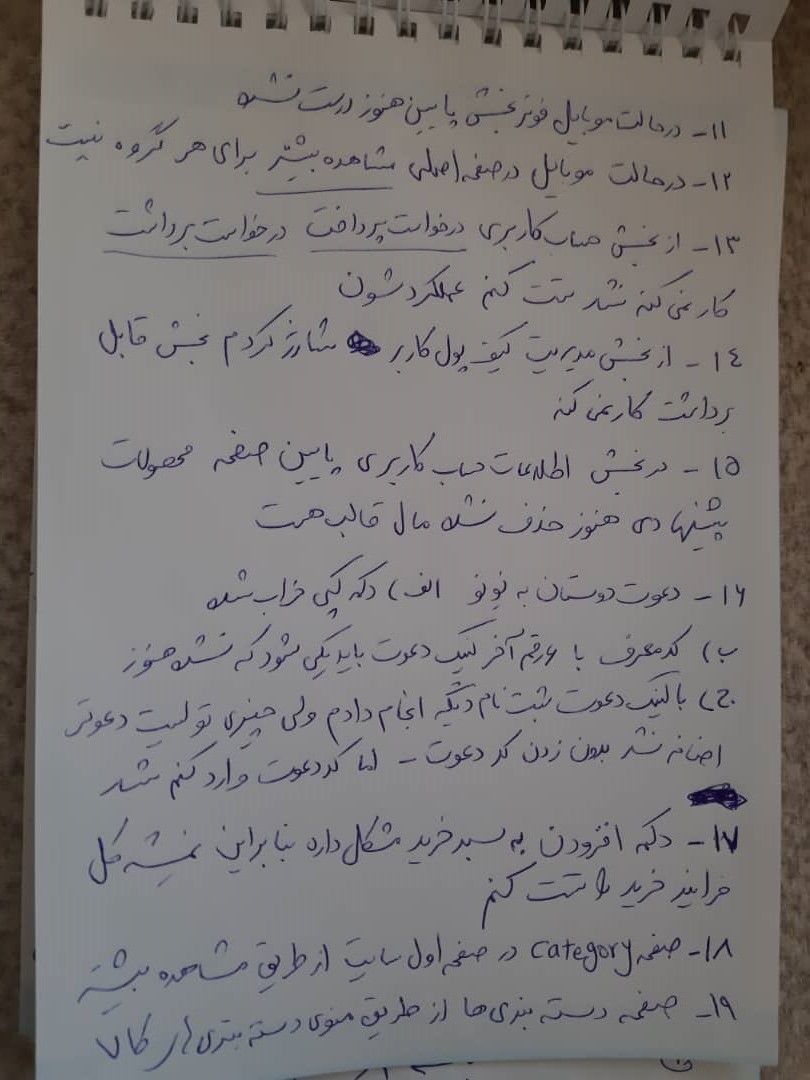 ۱۱- در حالت موبایل فوتر بخش پایین هنوز درست نشده
۱۲- در حالت موبایل در صفحه اصلی مشاهده بیشتر برای هر گروه نیست
۱۳- از بخش حساب کاربری درخواست پرداخت درخواست برداشت
کار نمی کنه نشد تست کنم عملکردشون
۱۴- از بخش مدیریت کیف پول کاربر شارژ کردم بخش قابل
برداشت کار نمی کنه
۱۵- در بخش اطلاعات حساب کاربری پایین صفحه محصولات
پیشنهادی هنوز حذف نشده مال قالب هست
۱۶- دعوت دوستان به الف) دکمه کپی خراب شده
ب) کد معرف با ۶ رقم آخر لینک دعوت باید یکی شود که نشده هنوز
ج) با لینک دعوت ثبت نام دیگه انجام دادم ولی چیزی تو لیست دعوتی
اضافه نشد بدون زدن کد دعوت - اما کد دعوت وارد کنم میشه
۱۷- دکمه افزودن به سبد خرید مشکل داره بنابراین نمیشه کل
فرایند خرید را تست کنم
۱۸- صفحه category در صفحه اول سایت از طریق مشاهده بیشتر
۱۹- صفحه دسته بندی ها از طریق منوی دسته بندی های کالا